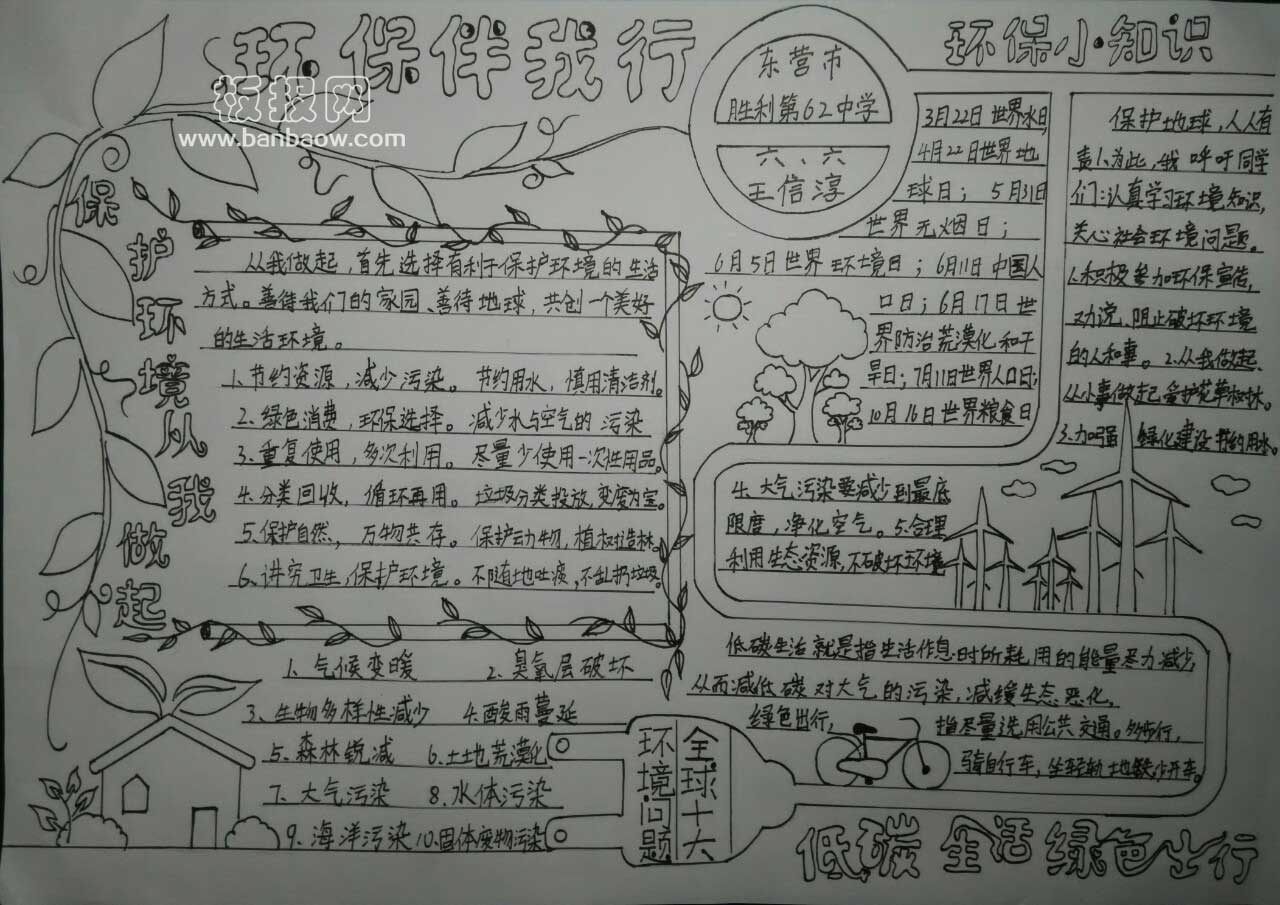 环保伴我行
板报网
www.banbaow.com
保护环境从我做起
从我做起,首先选择有利于保护环境的生活
方式。善待我们的家园、善待地球,共创一个美好
的生活环境。
1、节约资源,减少污染。节约用水,慎用清洁剂。
2、绿色消费,环保选择。减少水与空气的污染
3、重复使用,多次利用。尽量少使用一次性用品。
4、分类回收,循环再用。垃圾分类投放,变废为宝。
5、保护自然,万物共存。保护动物,植树造林。
6、讲究卫生,保护环境。不随地吐痰,不乱扔垃圾。
1、气候变暖 2、臭氧层破坏
3、生物多样性减少 4、酸雨蔓延
5、森林锐减 6、土地荒漠化
7、大气污染 8、水体污染
9、海洋污染 10、固体废物污染
全球十大
环境问题
东营市
胜利第62中学
六、六
王信淳
环保小知识
3月22日世界水日;
4月22日世界地
球日;5月31日
世界无烟日;
6月5日世界环境日;6月11日中国人
口日;6月17日世
界防治荒漠化和干
旱日;7月11日世界人口日;
10月16日世界粮食日
保护地球,人人有
责!为此,我呼吁同学
们:认真学习环境知识,
关心社会环境问题。
1.积极参加环保宣传,
劝说、阻止破坏环境
的人和事。2.从我做起、
从小事做起,爱护花草树林。
3.加强绿化建设 节约用水。
4.大气污染要减少到最底
限度,净化空气。5.合理
利用生态资源,不破坏环境
低碳生活就是指生活作息时所耗用的能量尽力减少,
从而减低碳对大气的污染,减缓生态恶化,
绿色出行,指尽量选用公共交通。多步行,
骑自行车,坐轻轨地铁,少开车。
低碳生活 绿色出行